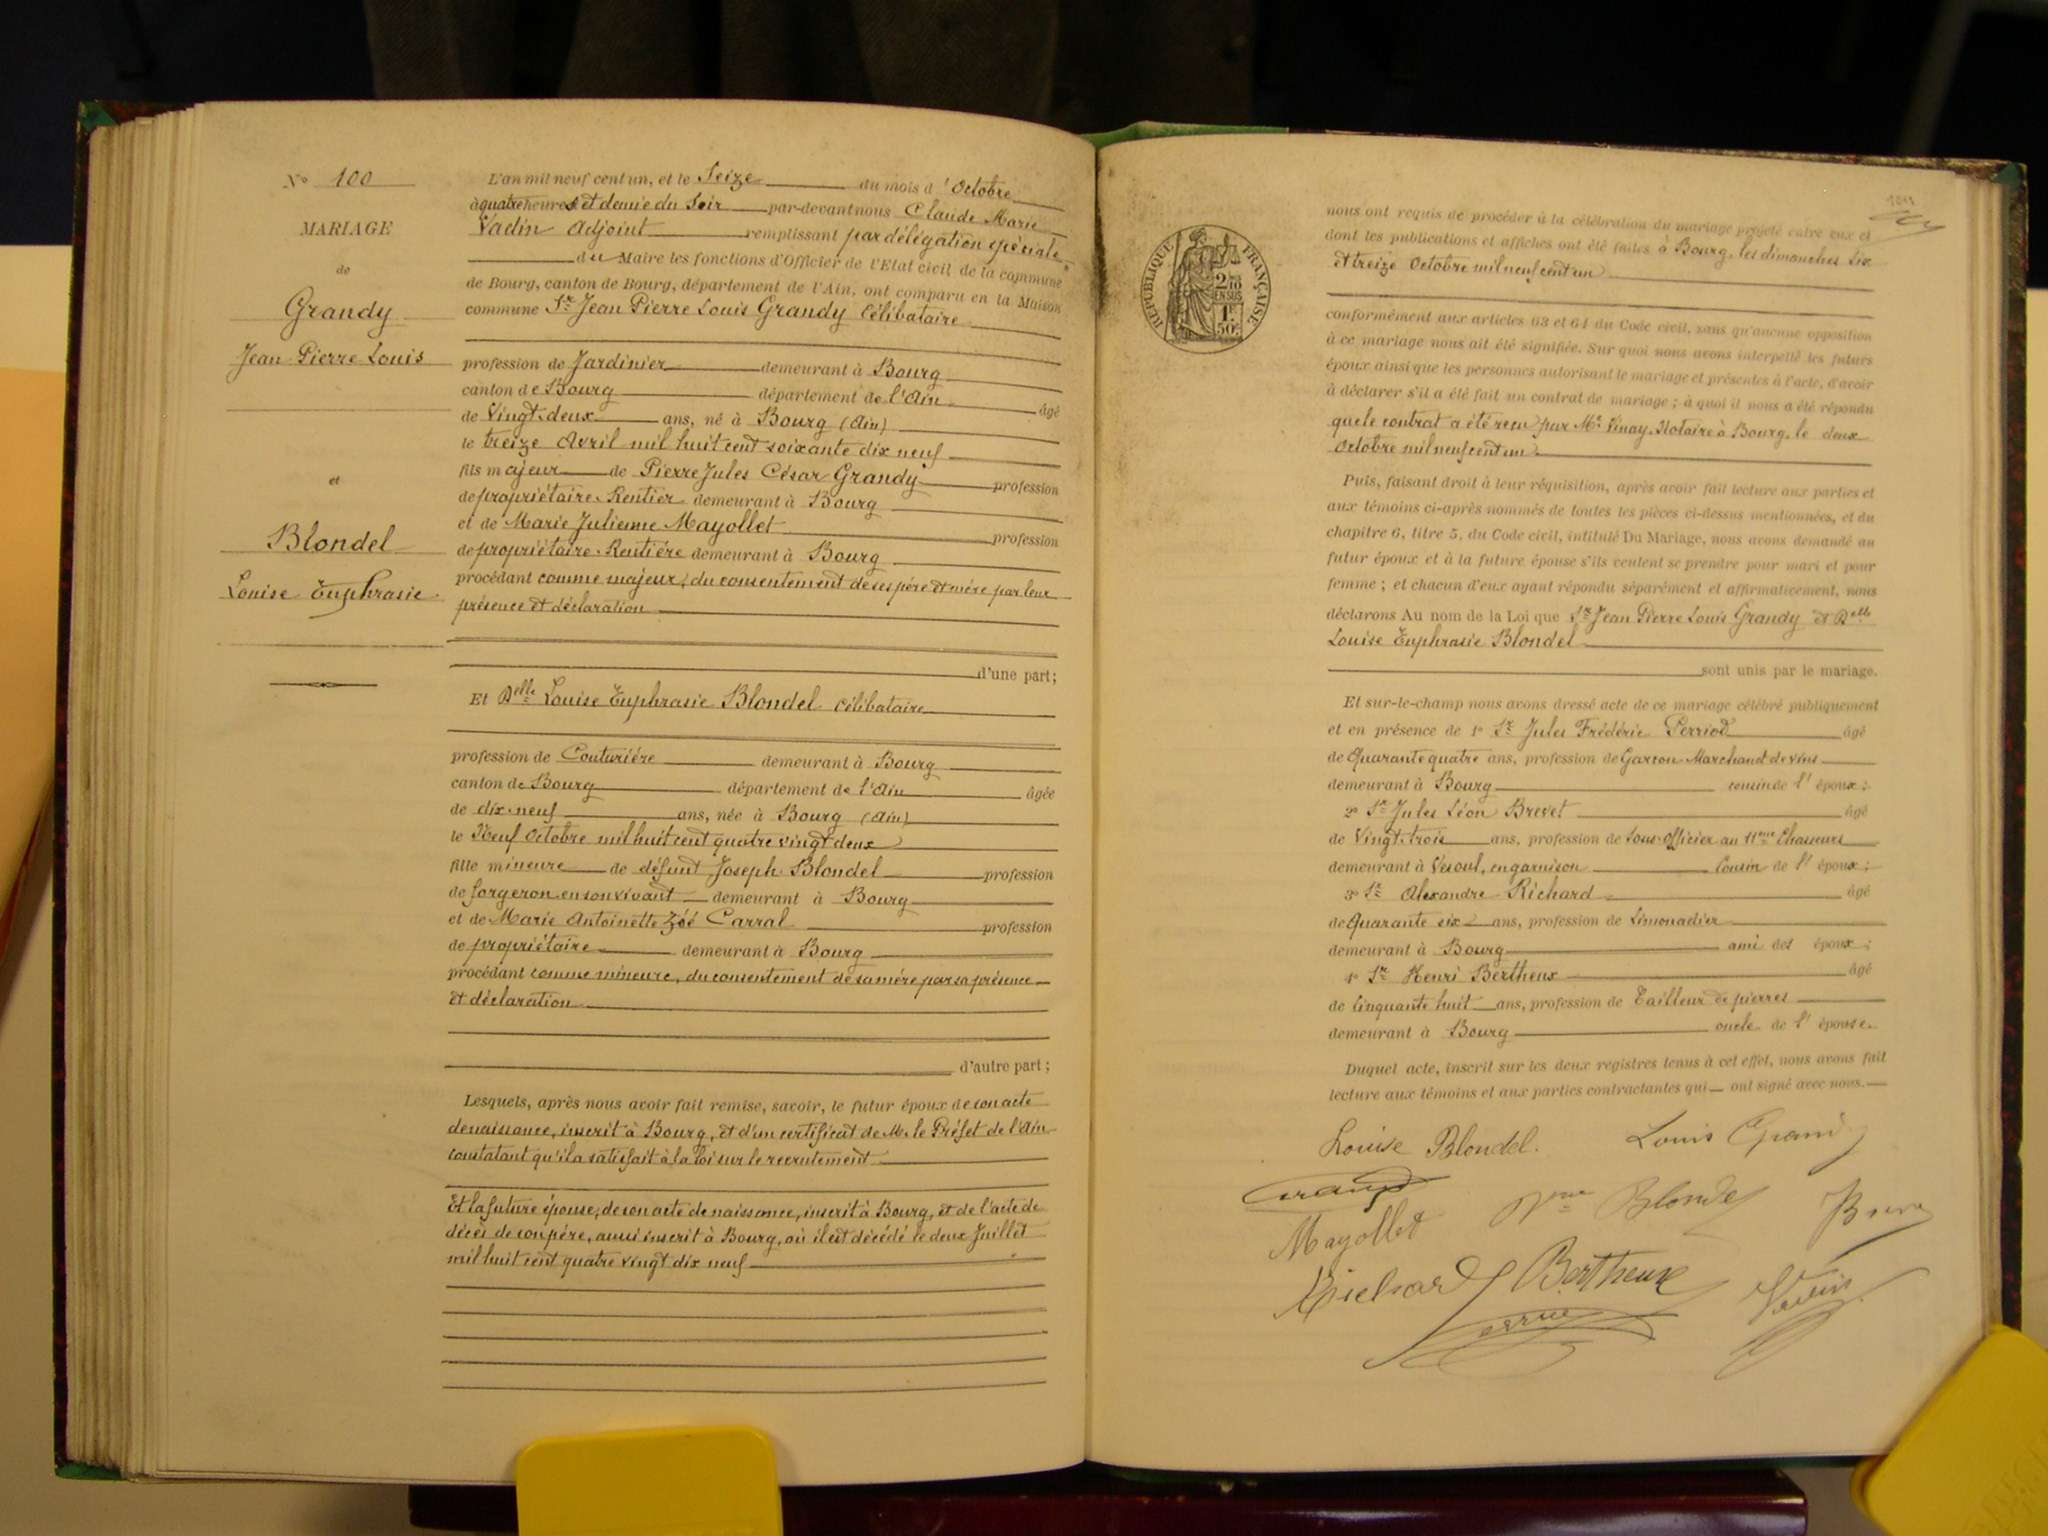 N° 100
MARIAGE
de
Grandy
Jean Pierre Louis
et
Blondel
Louise Euphrasie
L'an mil neuf cent un, et le Seize du mois d'Octobre
à quatre heures et demie du Soir par-devant nous Claude Marie
Vadin Adjoint remplissant par délégation spéciale
du Maire les fonctions d'Officier de l'Etat civil de la commune
de Bourg, canton de Bourg, département de l'Ain, ont comparu en la Maison
commune Sr Jean Pierre Louis Grandy Célibataire
profession de Jardinier demeurant à Bourg
canton de Bourg département de l'Ain âgé
de Vingt-deux ans, né à Bourg (Ain)
le treize Avril mil huit cent soixante dix neuf
fils majeur de Pierre Jules César Grandy profession
de propriétaire-Rentier demeurant à Bourg
et de Marie Julienne Mayollet profession
de propriétaire-Rentière demeurant à Bourg
procédant comme majeur, du consentement de ses père et mère par leur
présence et déclaration
d'une part;
Et Delle Louise Euphrasie Blondel célibataire
profession de Couturière demeurant à Bourg
canton de Bourg département de l'Ain âgée
de dix-neuf ans, née à Bourg (Ain)
le Neuf Octobre mil huit cent quatre vingt deux
fille mineure de défunt Joseph Blondel profession
de forgeron en son vivant demeurant à Bourg
et de Marie Antoinette Zoé Carral profession
de propriétaire demeurant à Bourg
procédant comme mineure, du consentement de sa mère par sa présence
et déclaration
d'autre part;
Lesquels, après nous avoir fait remise, savoir, le futur époux de son acte
de naissance, inscrit à Bourg, et d'un certificat de M. le Préfet de l'Ain
constatant qu'il a satisfait à la loi sur le recrutement
Et la future épouse, de son acte de naissance, inscrit à Bourg, et de l'acte de
décès de son père, aussi inscrit à Bourg, où il est décédé le deux Juillet
mil huit cent quatre vingt dix neuf
RÉPUBLIQUE FRANÇAISE
2/10
EN SUS
1F
50c
nous ont requis de procéder à la célébration du mariage projeté entre eux et
dont les publications et affiches ont été faites à Bourg, les dimanches six
et treize Octobre mil neuf cent un
conformément aux articles 63 et 64 du Code civil, sans qu'aucune opposition
à ce mariage nous ait été signifiée. Sur quoi nous avons interpellé les futurs
époux ainsi que les personnes autorisant le mariage et présentes à l'acte, d'avoir
à déclarer s'il a été fait un contrat de mariage; à quoi il nous a été répondu
que le contrat a été reçu par Me Vinay, Notaire à Bourg, le deux
Octobre mil neuf cent un
Puis, faisant droit à leur réquisition, après avoir fait lecture aux parties et
aux témoins ci-après nommés de toutes les pièces ci-dessus mentionnées, et du
chapitre 6, titre 5, du Code civil, intitulé Du Mariage, nous avons demandé au
futur époux et à la future épouse s'ils veulent se prendre pour mari et pour
femme; et chacun d'eux ayant répondu séparément et affirmativement, nous
déclarons Au nom de la Loi que Sr Jean Pierre Louis Grandy et Delle
Louise Euphrasie Blondel
sont unis par le mariage.
Et sur-le-champ nous avons dressé acte de ce mariage célébré publiquement
et en présence de 1° Sr Jules Frédéric Perriod âgé
de Quarante quatre ans, profession de Garçon Marchand de vins
demeurant à Bourg cousin de l'époux;
2° Sr Jules Léon Brevet âgé
de Vingt-trois ans, profession de Sous-Officier au 11ème Chasseurs
demeurant à Vesoul, en garnison Cousin de l'époux;
3° Sr Alexandre Richard âgé
de Quarante six ans, profession de Limonadier
demeurant à Bourg ami des époux;
4° Sr Henri Bertheux âgé
de Cinquante huit ans, profession de Tailleur de pierres
demeurant à Bourg oncle de l'épouse.
Duquel acte, inscrit sur les deux registres tenus à cet effet, nous avons fait
lecture aux témoins et aux parties contractantes qui ont signé avec nous.
Louise Blondel. Louis Grandy
Mayollet Vme Blondel
Richard Bertheux Vadin